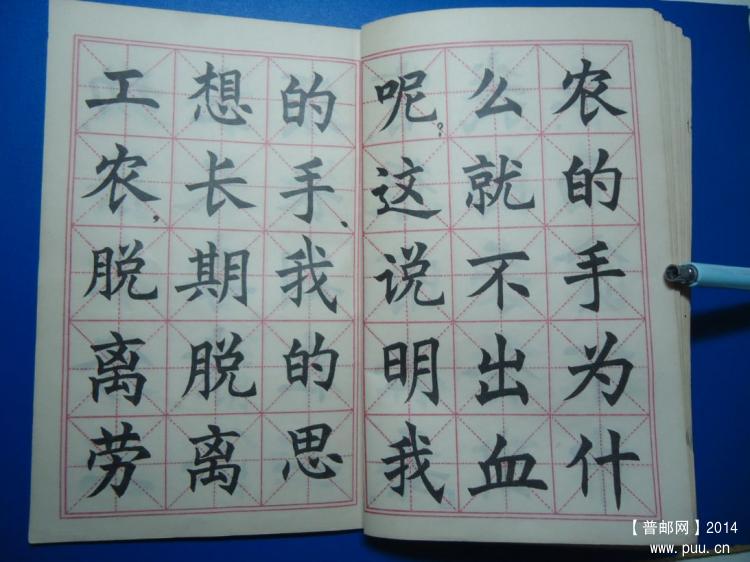 农的手为什
么就不出血
呢?这说明我
的手、我的思
想长期脱离
工农,脱离劳
【普邮网】2014
www.puu.cn